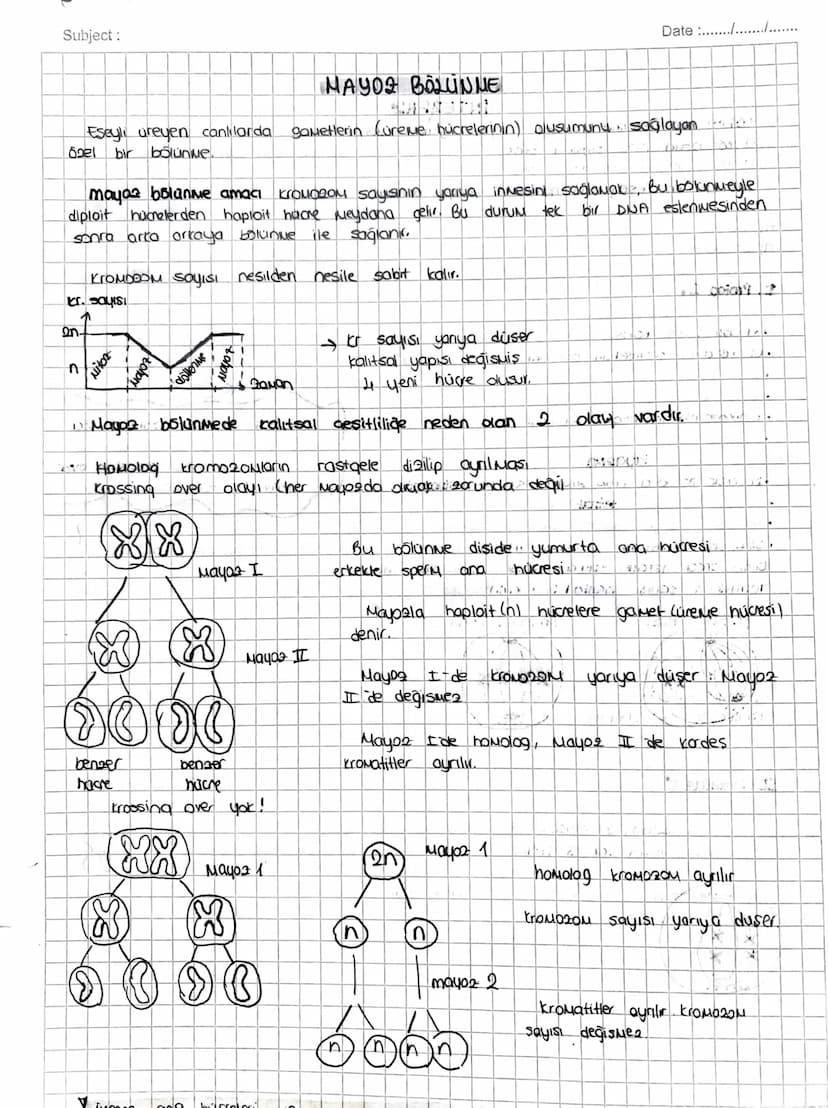 Subject :
Date :......./......./.......
MAYOZ BÖLÜNME
Eseyli üreyen canlılarda gametlerin (üreme hücrelerinin) olusumunu sağlayan
özel bir bölünme.
mayoz bölünme amacı kromozom sayısının yarıya inmesini sağlamak, Bu bölünmeyle
diploit hücrelerden haploit hücre meydana gelir. Bu durum tek bir DNA eslenmesinden
sonra arka arkaya bölünme ile sağlanır.
Kromozom sayısı nesilden nesile sabit kalır.
kr. sayısı
2n
n
mitoz
mayoz
döllenme
mayoz
zaman
→ kr sayısı yarıya düser
kalıtsal yapısı değismis
4 yeni hücre olusur.
Mayoz bölünmede kalıtsal cesitliliğe neden olan 2 olay vardır.
Homolog kromozomların rastgele dizilip ayrılması
krossing over olayı (her mayozda olmak zorunda değil
Mayoz I
Bu bölünme diside yumurta ana hücresi
erkekte sperm ana hücresi
Mayozla haploit (n) hücrelere gamet (üreme hücresi)
denir.
Mayoz II
Mayoz I-de kromozom yarıya düşer. Mayoz
II de değismez
Mayoz I de homolog, Mayoz II de kardes
kromatitler ayrılır.
benzer hücre
benzer hücre
krossing over yok!
Mayoz 1
2n
Mayoz 1
homolog kromozom ayrılır
n n
kromozom sayısı yarıya duser.
mayoz 2
kromatitler ayrılır kromozom
sayısı değismez
n n n n